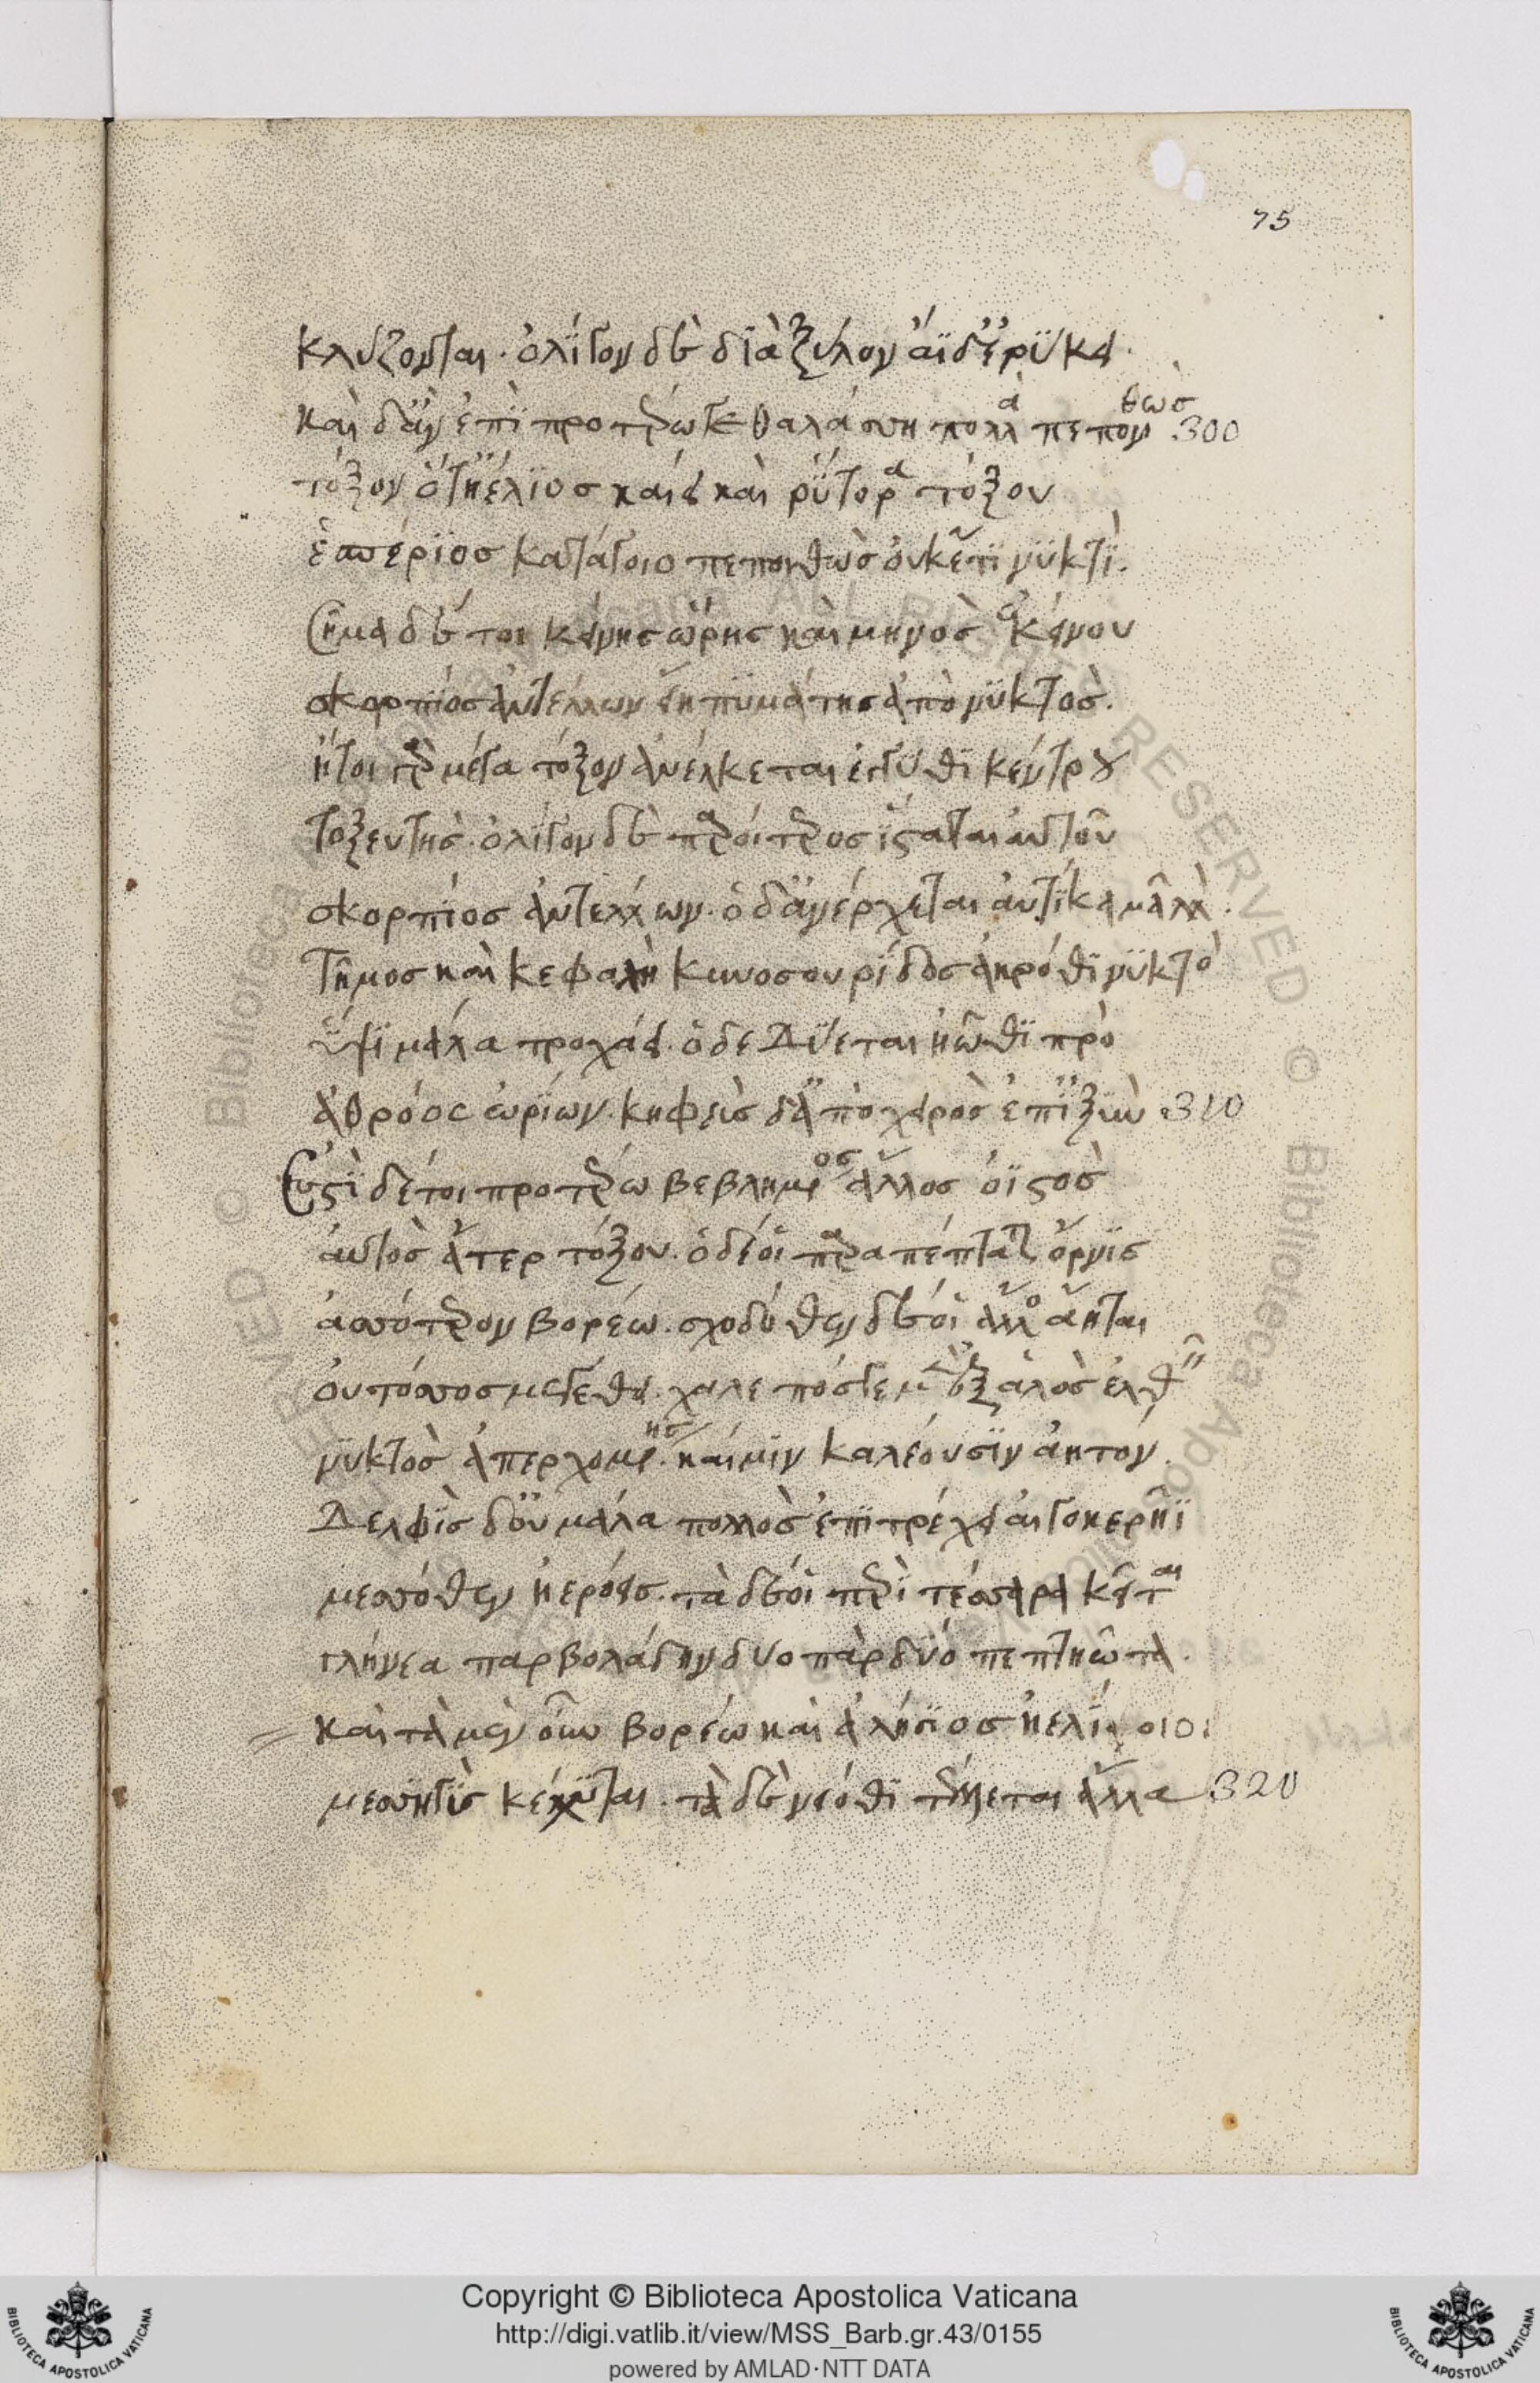 75
κλύζονται· ὀλίγον δὲ διὰ ξύλον ἄϊδ' ἐρύκει·
καὶ δ' ἂν ἐπὶ προτέρω τε θαλάσση πολλὰ πεπονθὼσ 300
τόξον ὅτ' ἠέλιοσ καίει καὶ ῥύτορα τόξου
ἑσπέριοσ κατάγοιο πεποιθὼσ οὐκέτι νυκτί.
Σῆμα δέ τοι κείνησ ὥρησ καὶ μηνὸσ ἐκείνου
σκορπίοσ ἀντέλλων εἴη πυμάτησ ἀπὸ νυκτόσ.
ἤτοι γὰρ μέγα τόξον ἀνέλκεται ἐγγύθι κέντρου
τοξευτήσ· ὀλίγον δὲ παροίτεροσ ἵσταται αὐτοῦ
σκορπίοσ ἀντέλλων· ὁ δ' ἀνέρχεται αὐτίκα μᾶλλ'.
Τῆμοσ καὶ κεφαλὴ κυνοσουρίδοσ ἀκρόθι νυκτὸ
ὕψι μάλα τροχάει· ὁ δὲ Δύεται ἠῶθι πρὸ
ἀθρόοσ ὠρίων· κηφεὺσ δ' ἀπὸ χειρὸσ ἐπ' ἰξύν 310
Ἔστι δέ τοι προτέρω βεβλημένοσ ἄλλοσ ὀϊστὸσ
αὐτὸσ ἄτερ τόξου· ὁ δέ οἱ παραπέπταται ὄρνισ
ἀσσότερον βορέω· σχεδόθεν δέ οἱ ἄλλοσ ἄηται
οὐ τόσσοσ μεγέθει· χαλεπόσ γε μὲν ἐξ ἁλὸσ ἐλθῆ
νυκτὸσ ἀπερχομένησ· καί μιν καλέουσιν ἀητόν.
Δελφὶσ δ' οὐ μάλα πολλὸσ ἐπιτρέχει αἰγοκερῆϊ
μεσσόθεν ἠερόεισ· τὰ δέ οἱ περὶ τέσσαρα κεῖται
γλήνεα παρβολάδην δύο πὰρ δύο πεπτηῶτα.
καὶ τὰ μὲν οὖν βορέω καὶ ἀλήσιοσ ἠελίοιο
μεσηγὺσ κέχυται· τὰ δὲ νειόθι τέλλεται ἄλλα 320
Copyright © Biblioteca Apostolica Vaticana
http://digi.vatlib.it/view/MSS_Barb.gr.43/0155
powered by AMLAD·NTT DATA